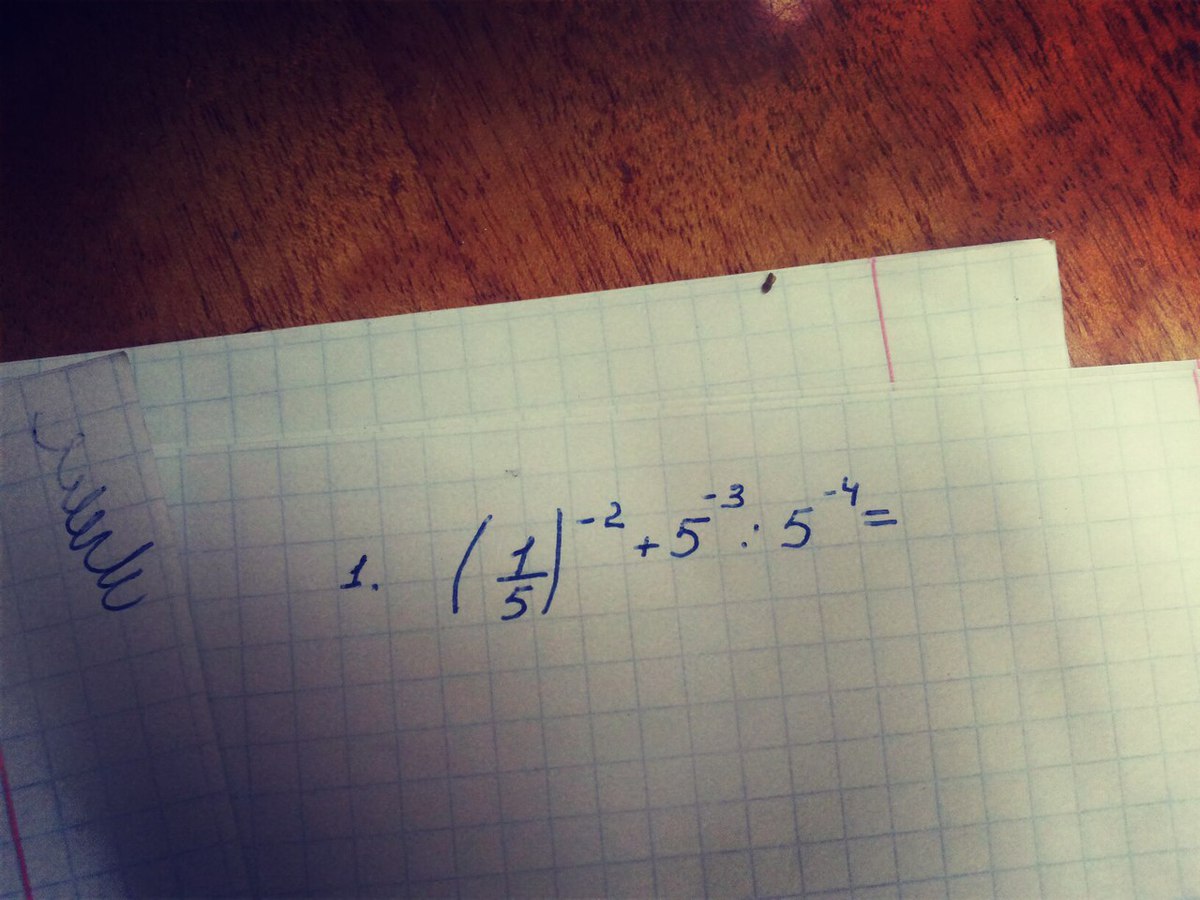 1. (1/5)^-2 + 5^-3 : 5^-4 =